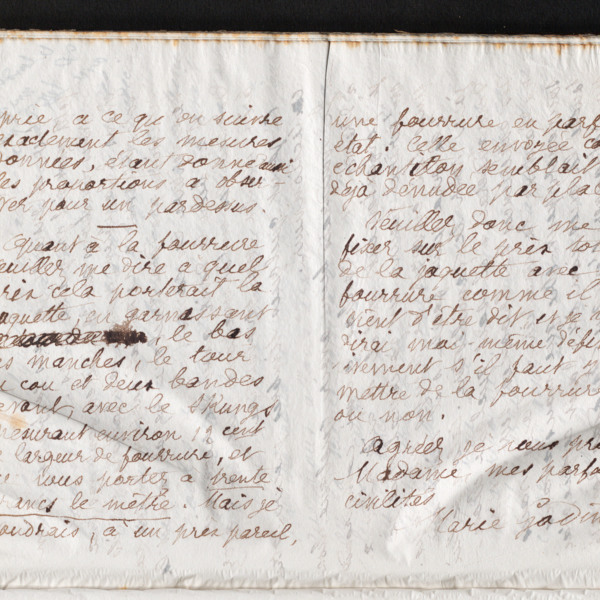 prie à ce qu'on suivre
exactement les mesures
données, étant donné aussi
les proportions à obser-
ver pour un pardessus.
Quant à la fourrure
veuiller me dire à quel
prix cela porterait la
jaquette, en garnissant
, le bas
es manches, le tour
u cou et deux bandes
evant, avec le Skungs
mesurant environ 12 cent
e largeur de fourrure, et
vous portez à trente
francs le mètre. Mais je
voudrais, à un prix pareil,
une fourrure en parf
état. Celle envoyée co
échantillon semblait
déjà dénudée par plac
Veuiller donc me
fixer sur le prix to
de la jaquette avec
fourrure comme il
vient d'être dit et je
dirai moi-même défi
-nivement s'il faut
mettre de la fourrure
ou non.
Agréer je vous pri
Madame, mes parf
civilités
Marie